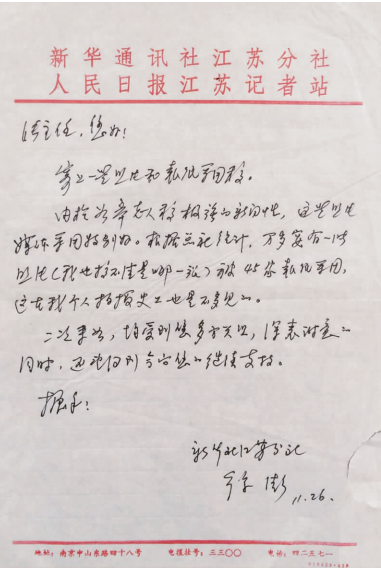 新华通讯社江苏分社
人民日报江苏记者站
陆主任，您好！
寄上一些照片和报纸采用稿。
由于冷帝老人稿极强的新闻性，这些照片
媒体采用特别好。根据总社统计，万多客有一张
照片（我也搞不清是哪一张）被45家报纸采用，
这在我个人拍摄史上也是不多见的。
二次来访，均受到您多方关照，深表谢意。
同时，还望得到今后您的继续支持。
握手！
新华社江苏分社
11.26.
地址：南京中山东路四十八号 电报挂号：三三〇〇 电话：四二五七一